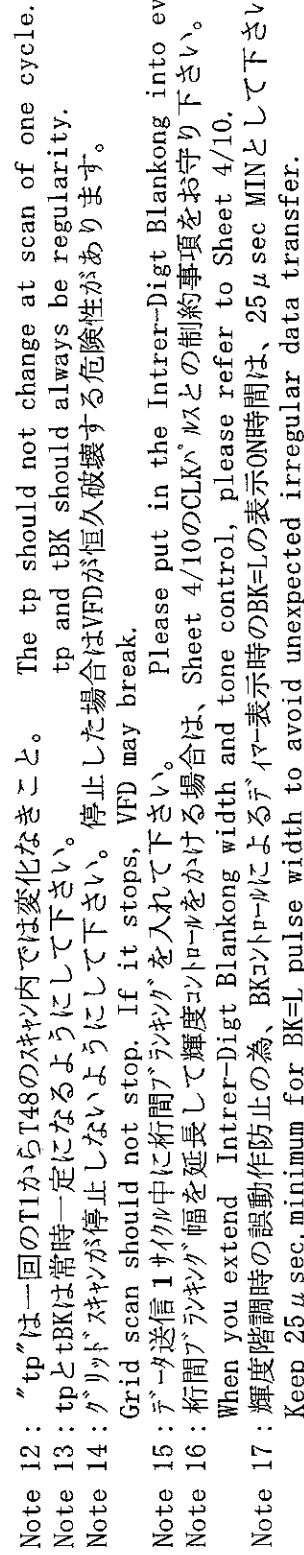 Note 12：″tp″は一回のT1からT48のスキャン内では変化なきこと。 The tp should not change at scan of one cycle.
Note 13：tpとtBKは常時一定になるようにして下さい。 tp and tBK should always be regularity.
Note 14：グリッドスキャンが停止しないようにして下さい。停止した場合はVFDが恒久破壊する危険性があります。
Grid scan should not stop. If it stops, VFD may break.
Note 15：データ送信１サイクル中に桁間ブランキングを入れて下さい。 Please put in the Intrer-Digt Blankong into ev
Note 16：桁間ブランキング幅を延長して輝度コントロールをかける場合は、Sheet 4/10のCLKパルスとの制約事項をお守り下さい。
When you extend Intrer-Digt Blankong width and tone control, please refer to Sheet 4/10.
Note 17：輝度階調時の誤動作防止の為、BKコントロールによるディマー表示時のBK=Lの表示ON時間は、25μsec MINとして下さい
Keep 25μsec.minimum for BK=L pulse width to avoid unexpected irregular data transfer.